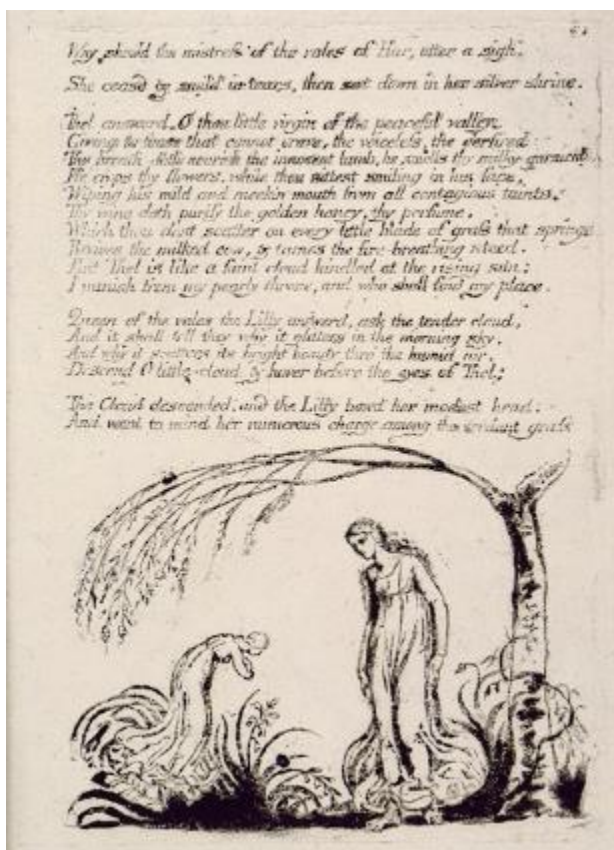 Why should the mistress of the vales of Har, utter a sigh.
She ceasd & smild in tears, then sat down in her silver shrine.
Thel answerd, O thou little virgin of the peaceful valley.
Giving to those that cannot crave, the voiceless, the
Thy breath doth nourish the innocent lamb, he smells thy milky garments
He crops thy flowers, while thou sittest smiling in his face,
Wiping his mild and meekin mouth from all contagious taints.
Thy wine doth purify the golden honey, thy perfume,
Which thou dost scatter on every little blade of grass that springs
Revives the milked cow, & tames the fire-breathing steed.
But Thel is like a faint cloud kindled at the rising sun:
I vanish from my pearly throne, and who shall find my place.
Queen of the vales the Lilly answerd, ask the tender cloud,
And it shall tell thee why it glitters in the morning sky,
And why it scatters its bright beauty thro the humid air.
Descend O little cloud & hover before the eyes of Thel:
The Cloud descended, and the Lilly bowd her modest head:
And went to mind her numerous charge among the verdant grass